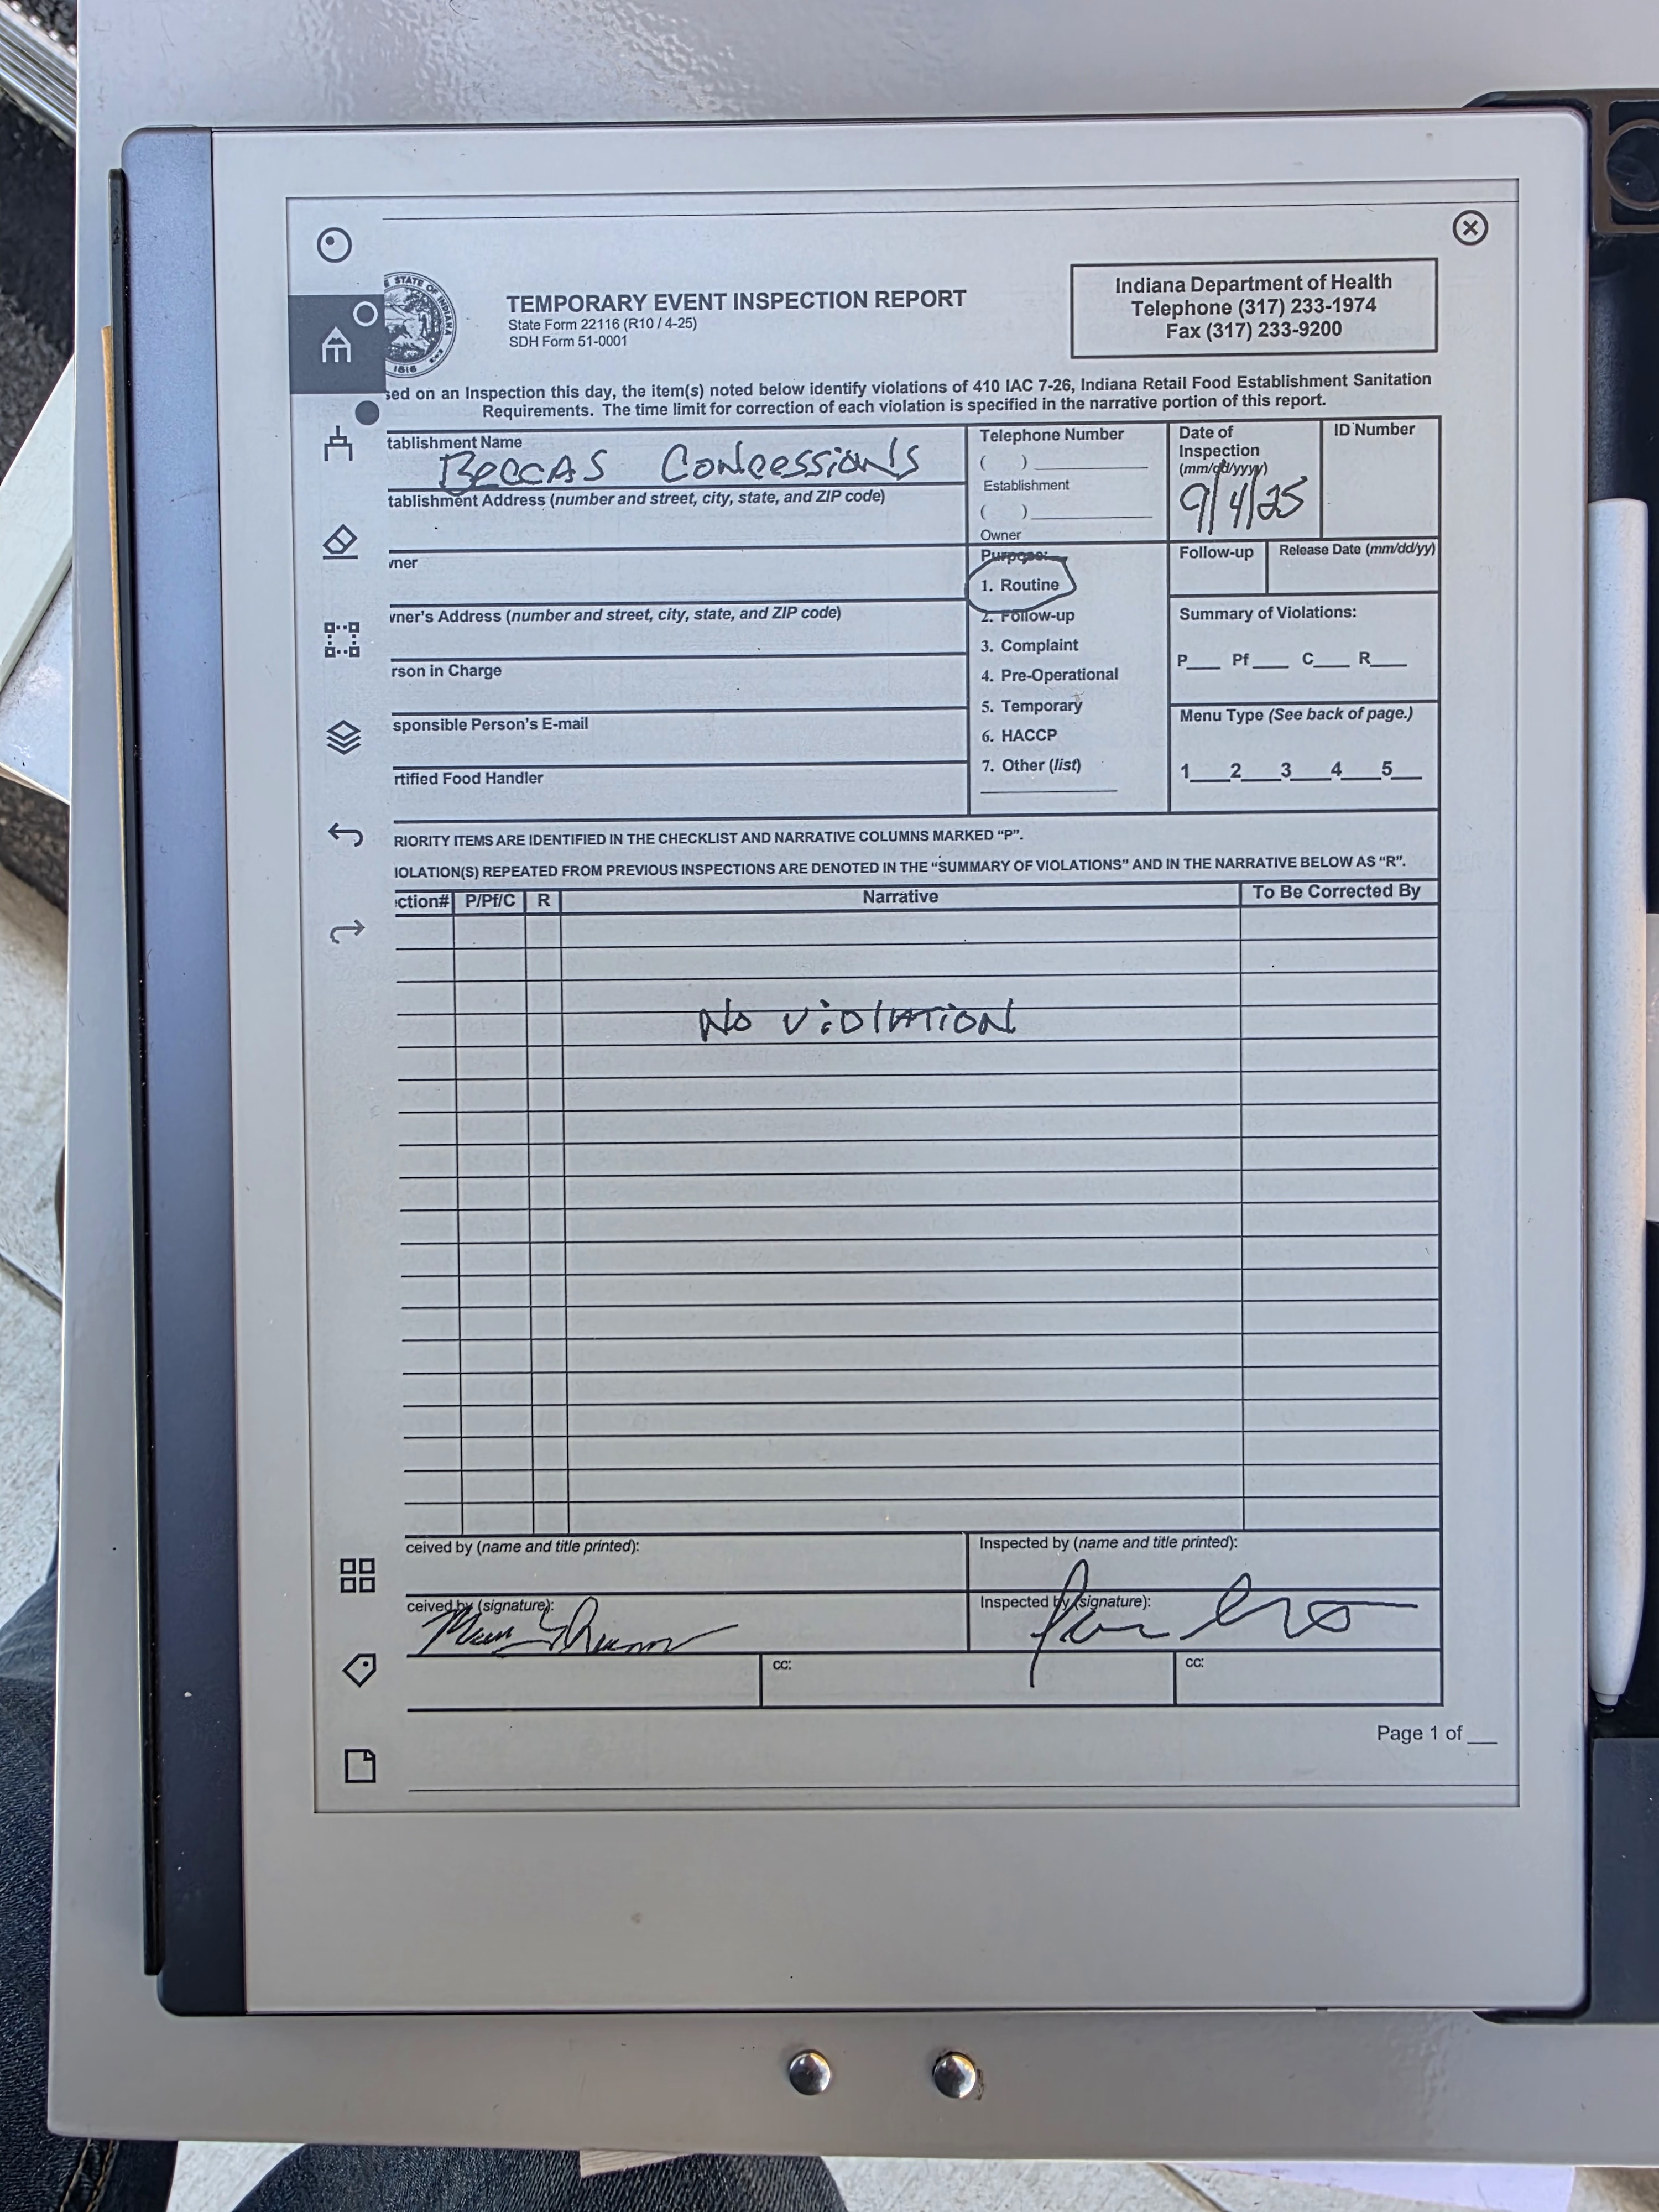 STATE OF INDIANA
1816
TEMPORARY EVENT INSPECTION REPORT
State Form 22116 (R10 / 4-25)
SDH Form 51-0001
Indiana Department of Health
Telephone (317) 233-1974
Fax (317) 233-9200
sed on an Inspection this day, the item(s) noted below identify violations of 410 IAC 7-26, Indiana Retail Food Establishment Sanitation
Requirements. The time limit for correction of each violation is specified in the narrative portion of this report.
tablishment Name
BECCAS Concessions
tablishment Address (number and street, city, state, and ZIP code)
wner
wner's Address (number and street, city, state, and ZIP code)
rson in Charge
sponsible Person's E-mail
rtified Food Handler
Telephone Number
( ) ____
Establishment
( ) ____
Owner
Purpose:
1. Routine
2. Follow-up
3. Complaint
4. Pre-Operational
5. Temporary
6. HACCP
7. Other (list)
Date of
Inspection
(mm/dd/yyyy)
9/4/25
ID Number
Follow-up
Release Date (mm/dd/yy)
Summary of Violations:
P___ Pf___ C___ R___
Menu Type (See back of page.)
1___2___3___4___5___
RIORITY ITEMS ARE IDENTIFIED IN THE CHECKLIST AND NARRATIVE COLUMNS MARKED “P”.
IOLATION(S) REPEATED FROM PREVIOUS INSPECTIONS ARE DENOTED IN THE “SUMMARY OF VIOLATIONS” AND IN THE NARRATIVE BELOW AS “R”.
ction# P/Pf/C R Narrative To Be Corrected By
No ViOlATiON
ceived by (name and title printed):
Inspected by (name and title printed):
ceived by (signature):
Inspected by (signature):
cc:
cc:
Page 1 of ___